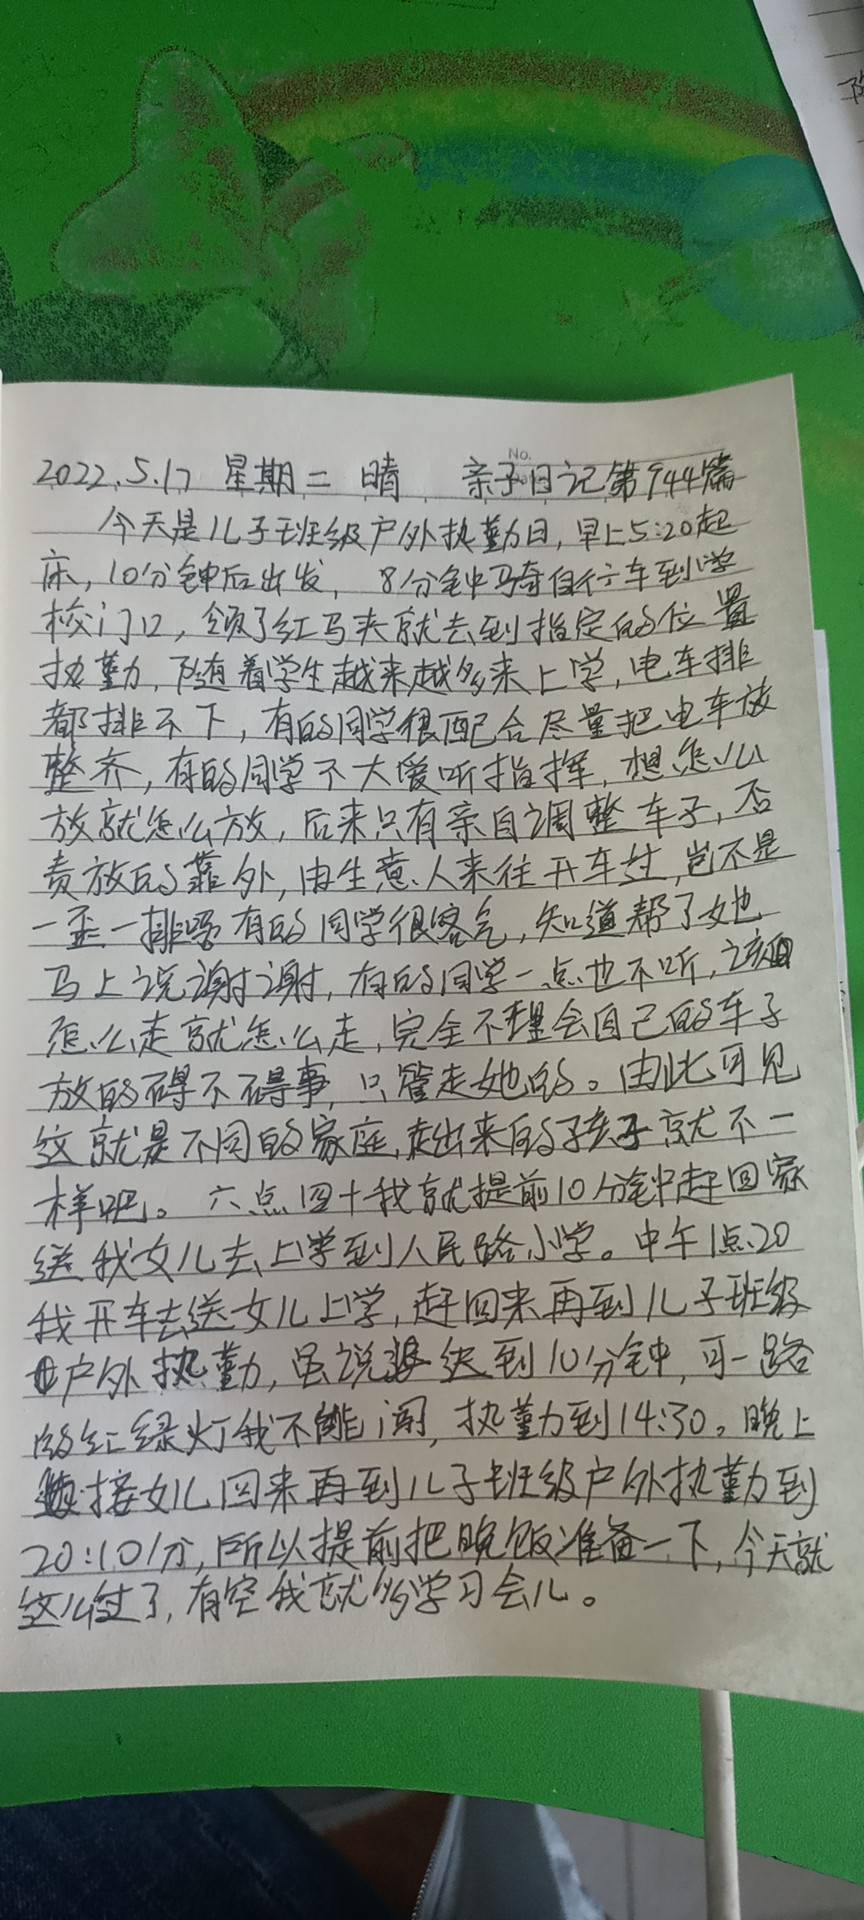 No.
2022.5.17 星期二 晴 亲子日记第944篇
今天是儿子班级户外执勤日,早上5:20起
床,10分钟后出发,8分钟骑自行车到学
校门口,领了红马夹就去到指定的位置
执勤,随着学生越来越多来上学,电车排
都排不下,有的同学很配合尽量把电车放
整齐,有的同学不大爱听指挥,想怎么
放就怎么放,后来只有亲自调整车子,否
责放的靠外,由生意人来往开车过,岂不是
一歪一排吗 有的同学很客气,知道帮了她
马上说谢谢,有的同学一点也不听,该
怎么走就怎么走,完全不理会自己的车子
放的碍不碍事,只管走她的。由此可见
这就是不同的家庭,走出来的孩子就不一
样吧。六点四十我就提前10分钟赶回家
送我女儿去上学到人民路小学。中午1点20
我开车去送女儿上学,赶回来再到儿子班级
户外执勤,虽说迟到10分钟,可一路
的红绿灯我不能闯,执勤到14:30。晚上
接女儿回来再到儿子班级户外执勤到
20:10分,所以提前把晚饭准备一下,今天就
这么过了,有空我就多学习会儿。